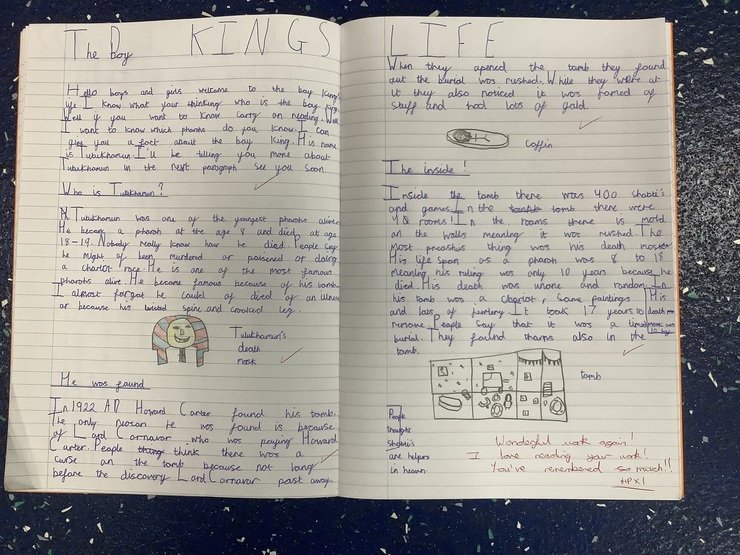 The Boy KINGS LIFE
Hello boys and girls welcome to the boy kings
life I know what your thinking who is the boy king. Well
if you want to know carry on reading.
I want to know which pharohs do you know. I can
give you a fact about the boy King. His name
is Tutukhamun. I'll be telling you more about
Tutukhamun in the next paragraph see you soon.
Who is Tutukhamun?
Tutukhamun was one of the youngest pharohs alive.
He became a pharoh at the age 8 and died at age
18-19. Nobody really know how he died. People say
he might of been murdered or poisened or doing
a chariot race. He is one of the most famous
pharohs alive. He became famous because of his tomb.
I almost forgot he could of died of an illness
or because his spine and crooked leg.
Tutukhamun's
death
mask
He was found
In 1922 AD Howard Carter found his tomb.
The only reason he was found is because
of Lord Carnavar who was paying Howard
Carter. People think there was a
curse on the tomb because not long
before the discovery Lord Carnavar past away.
When they opened the tomb they found
out the burial was rushed. While they where at
it they also noticed it was formed of
stuff and had lots of gold.
Coffin
The inside!
Inside the tomb there was 400 shabti's
and games. In the tomb there were
4 rooms! In the rooms there is mold
on the walls meaning it was rushed. The
most preashus thing was his death
His life span as a pharoh was 8 to 18
meaning his ruling was only 10 years because he
died. His death was and random. In
his tomb was a chariot, some paintings
and lots of It took 17 years to
remove People say that it was a
burial. They found also in the
tomb.
His
death
was
tomb
People
thought
Shabti's
are helpers
in heaven
Wonderful work again!
I love reading your work!
You've remembered so much!!
HPX1